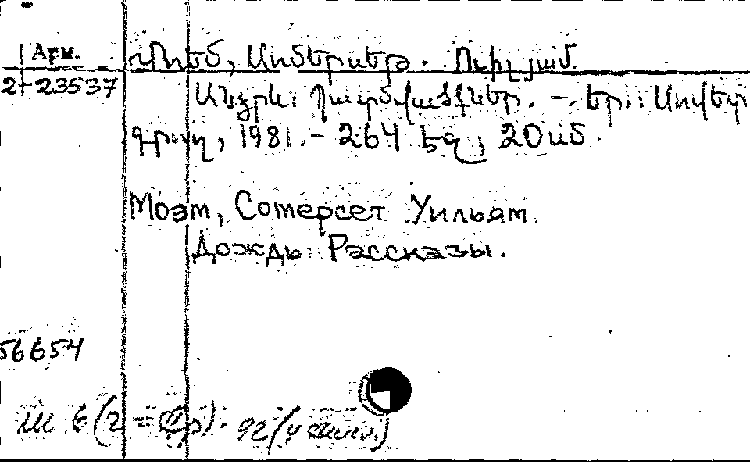 Арм.
Մոեմ, Սոմերսեթ Ուիլյամ.
2-23537
Անձրև: Պատմվածքներ. - Եր.: Սովետ
գրող, 1981. - 264 էջ, 20սմ.
Моэм, Сомерсет Уильям.
Дождь: Рассказы.
56654